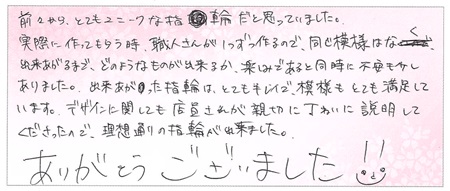 前々から、とてもユニークな指輪だと思っていました。
実際に作ってもらう時、職人さんが1つずつ作るので、同じ模様はなく、
出来あがるまで、どのようなものが出来るか、楽しみであると同時に不安も少し
ありました。出来あがった指輪は、とてもキレイで、模様もとても満足して
います。デザインに関しても店員さんが親切に丁ねいに説明して
くださったので、理想通りの指輪が出来ました。
ありがとうございました!!